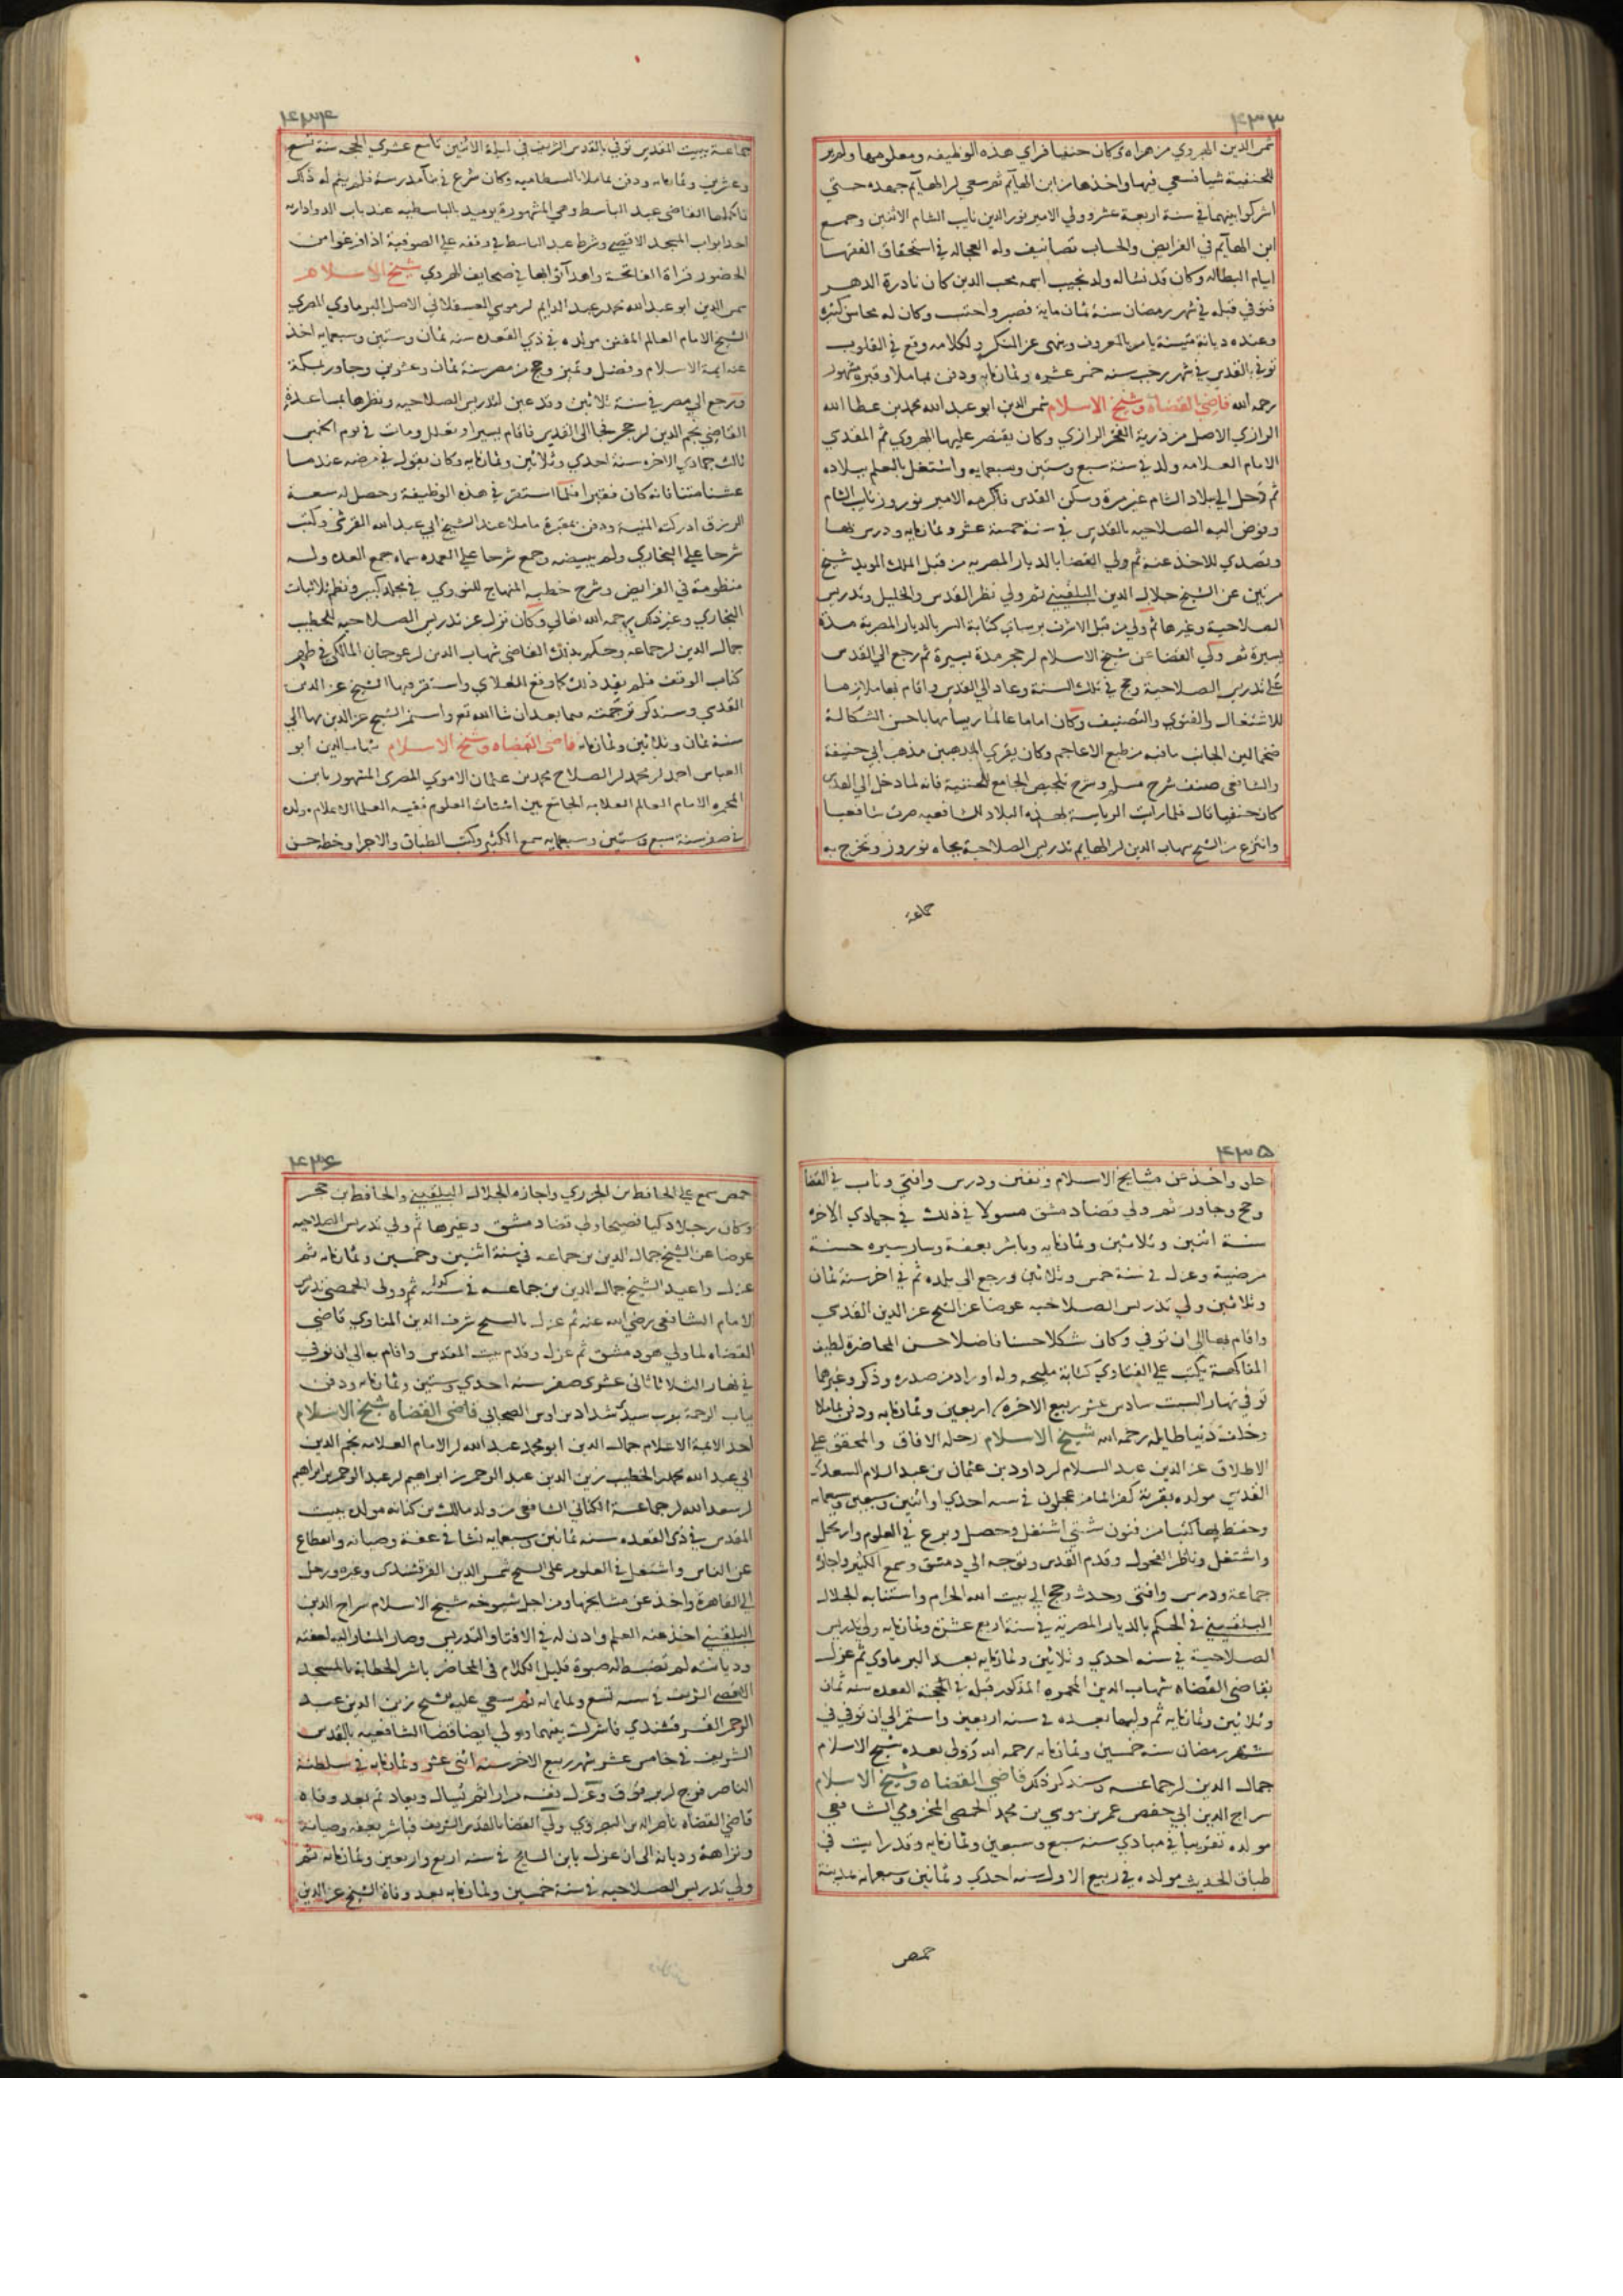 ٤٣٣
شمس الدين الهروي من هراه وكان حنفيا فراي هذه الوظيفه ومعلومها ولم ير
للحنفية شيا فسعي فيها واخذها من ابن الهآيم ثم سعي ابن الهآيم جهده حتي
اشركوا بينهما في سنة اربعة عشر وولي الامير نور الدين نايب الشام الاثنين وجمع
ابن الهآيم في الفرايض والحساب تصانيف وله العجاله في استحقاق الفقها
ايام البطاله وكان قد نشا له ولد نجيب اسمه محب الدين كان نادرة الدهر
فتوفي قبله في شهر رمضان سنة ثمان ماية فصبر واحتسب وكان له محاسن كثيره
وعنده ديانة متينة يامر بالمعروف وينهى عن المنكر ولكلامه وقع في القلوب
توفي بالقدس في شهر رجب سنه خمس عشره وثمانمايه ودفن بماملا وقبره مشهور
رحمه الله قاضي القضاة وشيخ الاسلام شمس الدين ابو عبد الله محمد بن عطا الله
الرازي الاصل من ذرية الفخر الرازي وكان يقتصر عليها الهروي ثم المقدسي
الامام العلامه ولد في سنة سبع وستين وسبعمايه واشتغل بالعلم ببلاده
ثم رحل الي بلاد الشام غير مرة وسكن القدس فاكرمه الامير نوروز نايب الشام
وفوض اليه الصلاحيه بالقدس في سنة خمسة عشر وثمانمايه ودرس بها
وتصدي للاخذ عنه ثم ولي القضا بالديار المصريه من قبل الملك المويد شيخ
مرتين عن الشيخ جلال الدين البلقيني ثم ولي نظر القدس والخليل وتدريس
الصلاحية وغيرها ثم ولي من قبل الاشرف برسباي كتابة السر بالديار المصرية مدة
يسيرة ثم ولي القضا عن شيخ الاسلام ابن حجر مدة يسيرة ثم رجع الي القدس
علي تدريس الصلاحية وحج في تلك السنة وعاد الي القدس واقام بها ملازما
للاشتغال والفتوي والتصنيف وكان اماما عالما رييسا مهابا حسن الشكالة
ضخما لين الجانب مافيه من طبع الاعاجم وكان يقري المذهبين مذهب ابي حنيفة
والشافعي صنف شرح مسلم وشرح تلخيص الجامع للحنفية فانه لما دخل الي القدس
كان حنفيا قال فلما رايت الرياسة بهذه البلاد للشافعيه صرت شافعيا
وانتزع من الشيخ شهاب الدين ابن الهايم تدريس الصلاحية بجاه نوروز وتخرج به
جماعة
٤٣٤
جماعة ببيت المقدس توفي بالقدس الشريف في ليلة الاثنين تاسع عشري الحجه سنة تسع
وعشرين وثمانمايه ودفن بماملا بالبسطاميه وكان شرع في بنآ مدرسة فلم يتم له ذلك
فاكملها القاضي عبد الباسط وهي المشهورة يوميذ بالباسطيه عند باب الدواداريه
احد ابواب المسجد الاقصي وشرط عبد الباسط في وقفه علي الصوفية اذا فرغوا من
الحضور قراة الفاتحة واهدآ ثوابها في صحايف الهروي شيخ الاسلام
شمس الدين ابو عبد الله محمد بن عبد الدايم بن موسي العسقلاني الاصل البرماوي المصري
الشيخ الامام العالم المفنن مولده في ذي القعده سنه ثمان وستين وسبعمايه اخذ
عنه ايمة الاسلام وفضل وتميز وحج من مصر سنة ثمان وعشرين وجاور بمكة
ورجع الي مصر في سنة ثلاثين وقد عين لتدريس الصلاحيه ونظرها بمساعدة
القاضي نجم الدين بن حجر فجا الي القدس فاقام يسيرا وتعلل ومات في يوم الخميس
ثالث جمادي الاخره سنة احدي وثلاثين وثمانمايه وكان يقول في مرضه عند ما
عشنا متنا فانه كان فقيرا فلما استقر في هذه الوظيفة وحصل له سعة
الرزق ادركته المنية ودفن بمقبرة ماملا عند الشيخ ابي عبد الله القرشي وكتب
شرحا علي البخاري ولم يبيضه وجمع شرحا علي العمده سماه جمع العده وله
منظومة في الفرايض وشرح خطبه المنهاج للنووي في مجلد كبير ونظم ثلاثيات
البخاري وغير ذلك رحمه الله تعالي وكان نزل عن تدريس الصلاحيه للخطيب
جمال الدين بن جماعة وحكم بذلك القاضي شهاب الدين بن عوجان المالكي في ظهر
كتاب الوقف فلم يفد ذلك كما وقع للعلاي واستقر فيها الشيخ عز الدين
القدسي وسنذكر ترجمته فيما بعد ان شا الله تع واستمر الشيخ عز الدين بها الي
سنة ثمان وثلاثين وثمانمايه قاضي القضاه وشيخ الاسلام شهاب الدين ابو
العباس احمد بن محمد بن الصلاح محمد بن عثمان الاموي المصري المشهور بابن
المحمره الامام العالم العلامه الجامع بين اشتات العلوم بقية العلما الاعلام مولده
في صفر سنة سبع وستين وسبعمايه سمع الكثير وكتب الطباق والاجزا وخطه حسن
٤٣٥
حلو واخذ عن مشايخ الاسلام وتفنن ودرس وافتي وناب في القضا
وحج وجاور ثم ولي قضا دمشق مسولا في ذلك في جمادي الاخره
سنة اثنين وثلاثين وثمانمايه وباشر بعفة وسار سيره حسنة
مرضية وعزل في سنة خمس وثلاثين ورجع الي بلده ثم في اخر سنة ثمان
وثلاثين ولي تدريس الصلاحيه عوضا عن الشيخ عز الدين القدسي
واقام بها الي ان توفي وكان شكلا حسنا فاضلا حسن المحاضرة لطيف
المفاكهة يكتب علي الفتاوي كتابة مليحه وله اوراد من صدره وذكر وغيرهما
توفي نهار السبت سادس عشر ربيع الاخره اربعين وثمانمايه ودفن بماملا
وخلف دنيا طايله رحمه الله شيخ الاسلام رحله الافاق والمحقق علي
الاطلاق عز الدين عبد السلام بن داود بن عثمان بن عبد السلام السعدي
القدسي مولده بقرية كفر الما من عجلون في سنه احدي او اثنين وسبعين وسبعمايه
وحفظ بها كتبا من فنون شتي اشتغل وحصل وبرع في العلوم وارتحل
واشتغل وناظر الفحول وقدم القدس وتوجه الي دمشق وسمع الكثير واجازه
جماعة ودرس وافتي وحدث وحج الي بيت الله الحرام واستنابه الجلال
البلقيني في الحكم بالديار المصرية في سنة اربع عشرة وثمانمايه ولي تدريس
الصلاحية في سنه احدي وثلاثين وثمانمايه بعد البرماوي ثم عزل
بقاضي القضاه شهاب الدين المحمره المذكور قبله في القعده سنه ثمان
وثلاثين وثمانمايه ثم وليها بعده في سنه اربعين واستمر الي ان توفي في
شهر رمضان سنه خمسين وثمانمايه رحمه الله وولي بعده شيخ الاسلام
جمال الدين بن جماعه وسنذكر ذكره قاضي القضاه وشيخ الاسلام
سراج الدين ابي حفص عمر بن موسي بن محمد الحمصي المخزومي الشافعي
مولده تقريبا في مبادي سنه سبع وسبعين وثمانمايه وقد رايت في
طباق الحديث مولده في ربيع الاول سنه احدي وثمانين وسبعمايه بمدينة
حمص
٤٣٦
حمص سمع علي الحافظ بن الجزري واجازه الجلال البلقيني والحافظ بن حجر
وكان رجلا ذكيا فصيحا ولي قضا دمشق وغيرها ثم ولي تدريس الصلاحيه
عوضا عن الشيخ جمال الدين بن جماعه في سنة اثنين وخمسين وثمانمايه ثم
عزل واعيد الشيخ جمال الدين بن جماعه في ثم وولي الحمصي تدريس
الامام الشافعي رضي الله عنه ثم عزل بالشيخ شرف الدين المناوي قاضي
القضاه لما ولي هو دمشق ثم عزل وقدم بيت المقدس واقام به الي ان توفي
في نهار الثلاثا ثاني عشري صفر سنه احدي وستين وثمانمايه ودفن
بباب الرحمة بقرب سيدي شداد بن اوس الصحابي قاضي القضاه شيخ الاسلام
احد الايمة الاعلام جمال الدين ابو محمد عبد الله بن الامام العلامه نجم الدين
ابي عبد الله محمد بن الخطيب زين الدين عبد الرحمن بن ابراهيم بن عبد الرحمن بن ابراهيم
بن سعد الله بن جماعة الكناني الشافعي من ولد مالك بن كنانه مولده ببيت
المقدس في ذي القعده سنه ثمانين وسبعمايه نشا في عفة وصيانه وانقطاع
عن الناس واشتغل في العلوم علي الشيخ شمس الدين القرقشندي وغيره ورحل
الي القاهرة واخذ عن مشايخها ومن اجل شيوخه شيخ الاسلام سراج الدين
البلقيني اخذ عنه العلم واذن له في الافتا والتدريس وصار المشار اليه لعفته
وديانته لم تضبط له صبوة قليل الكلام في المحاضر باشر الخطابة بالمسجد
الاقصي الشريف في سنه تسع وثمانمايه ثم سعي عليه الشيخ زين الدين عبد
الرحمن القرقشندي فاشركت بينهما وولي ايضا قضا الشافعيه بالقدس
الشريف في خامس عشر شهر ربيع الاخر سنه اثني عشر وثمانمايه في سلطنة
الناصر فرج بن برقوق وعزل نفسه مرارا ثم يسال ويعاد ثم بعد وفاه
قاضي القضاه ناصر الدين البصروي ولي القضا بالقدس الشريف فباشر بعفه وصيانة
ونزاهة وديانة الي ان عزل بابن السايح في سنه اربع واربعين وثمانمايه ثم
ولي تدريس الصلاحيه في سنة خمسين وثمانمايه بعد وفاة الشيخ عز الدين